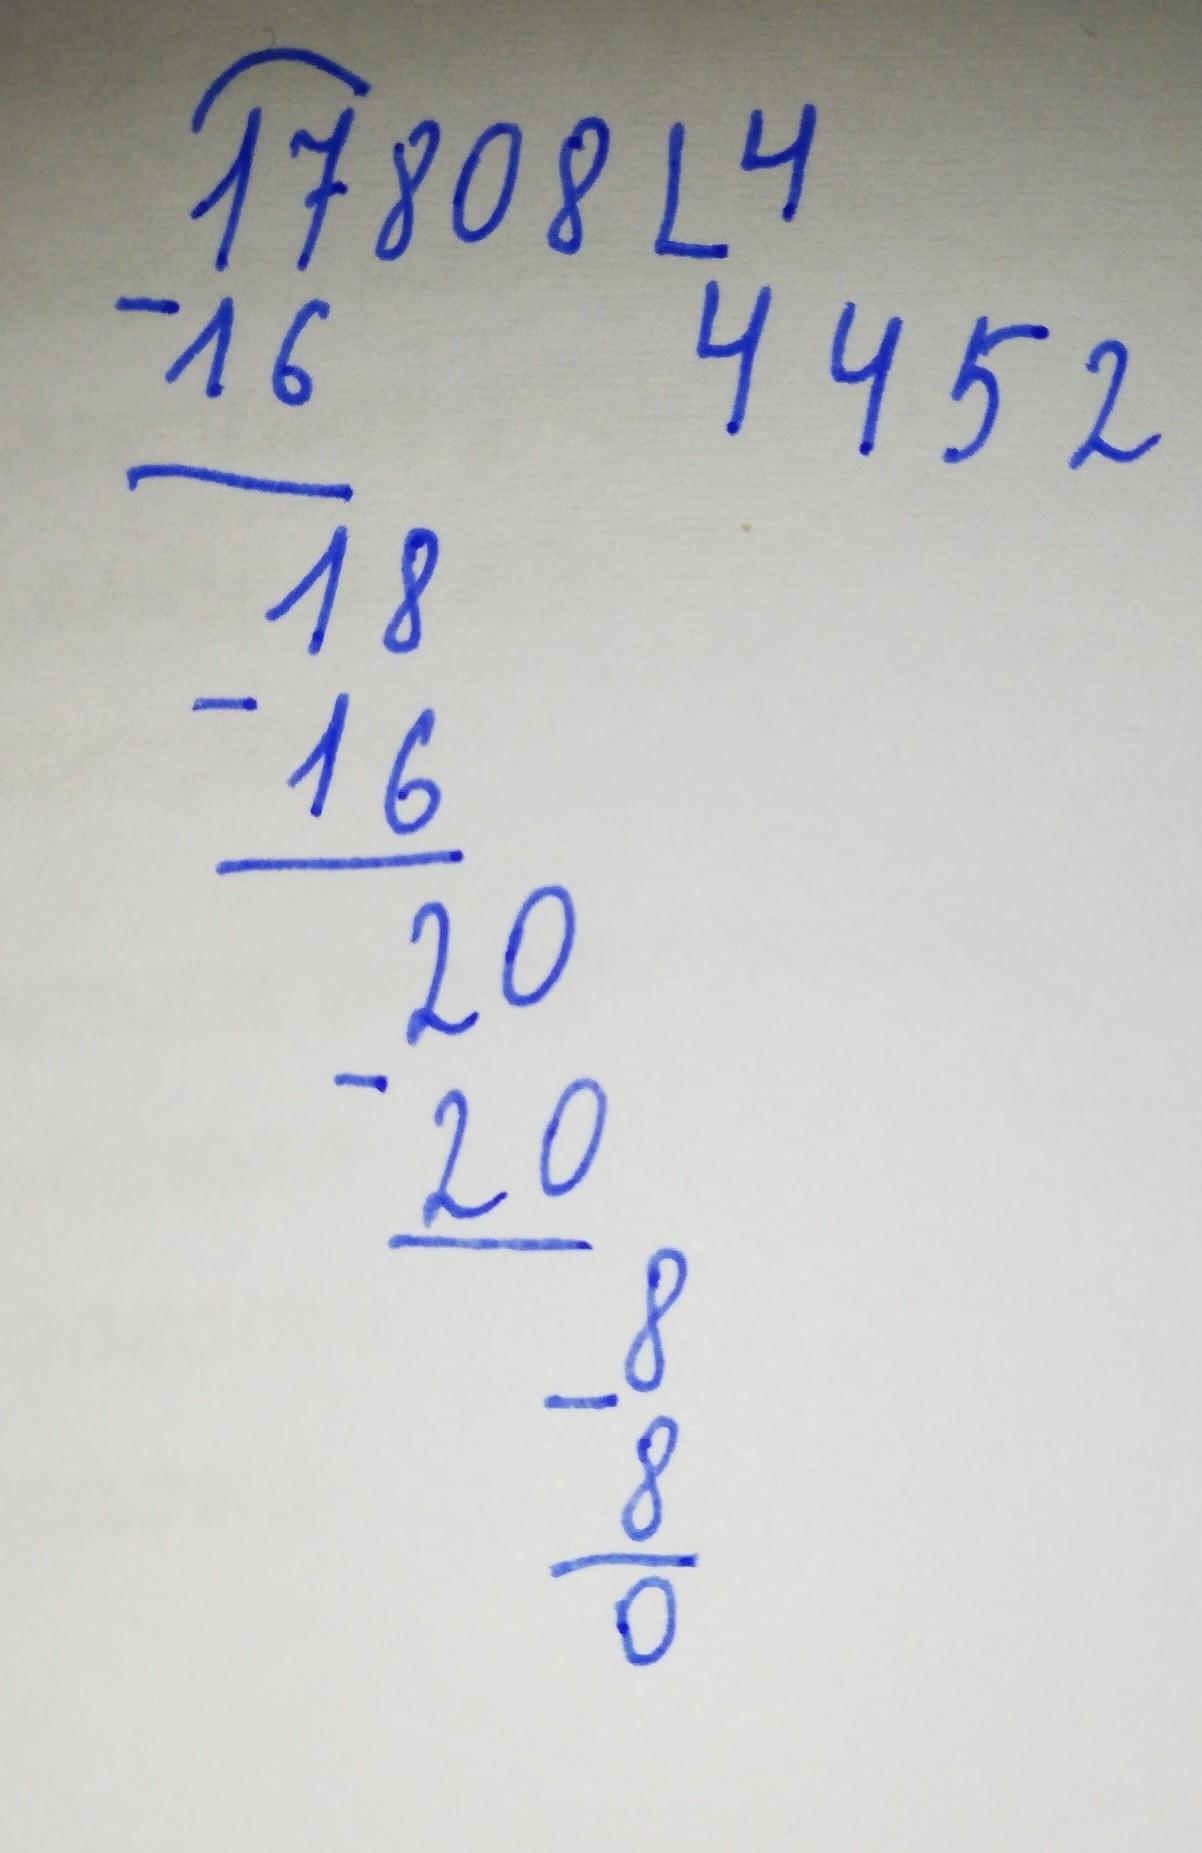 17808 L 4
-16 4452
18
-16
20
-20
8
-8
0